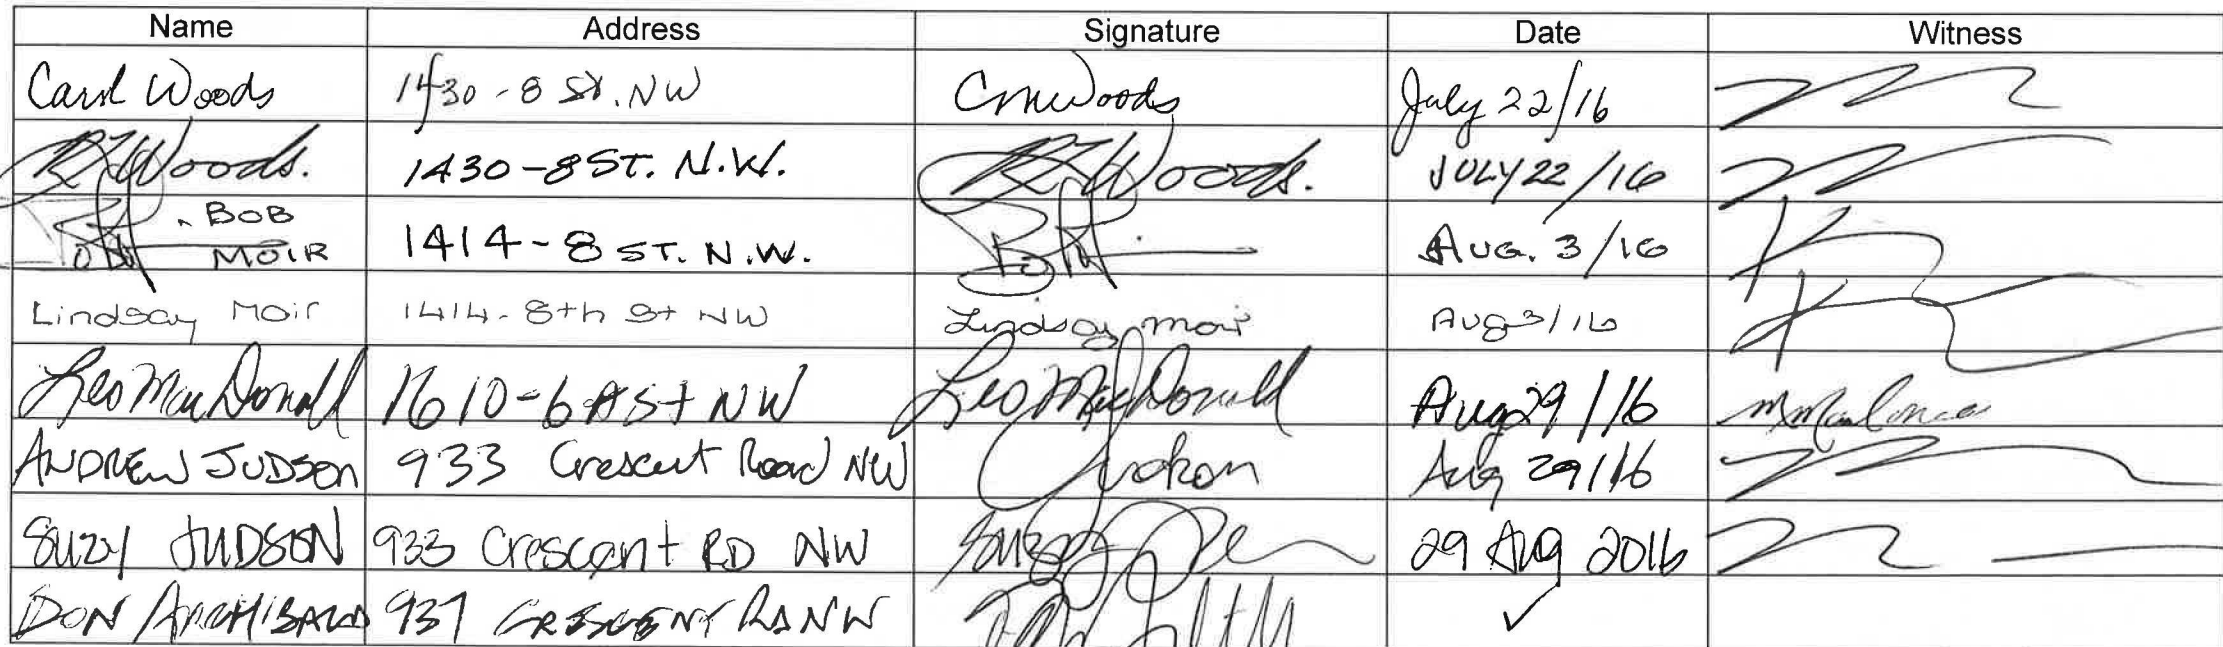 Name Address Signature Date Witness
Carol Woods 1430 - 8 St. NW CMWoods July 22/16
Woods. 1430 - 8 ST. N.W. Woods. JULY 22/16
BOB MOIR 1414 - 8 ST. N.W. AUG. 3/16
Lindsay Moir 1414 - 8th St NW Lindsay Moir Aug 3/16
Leo MacDonald 1610 - 6 A St NW Leo MacDonald Aug 29/16
ANDREW JUDSON 933 Crescent Road NW Judson Aug 29/16
SUZY JUDSON 933 Crescent RD NW 29 Aug 2016
DON ARCHIBALD 937 CRESCENT Rd NW ✓